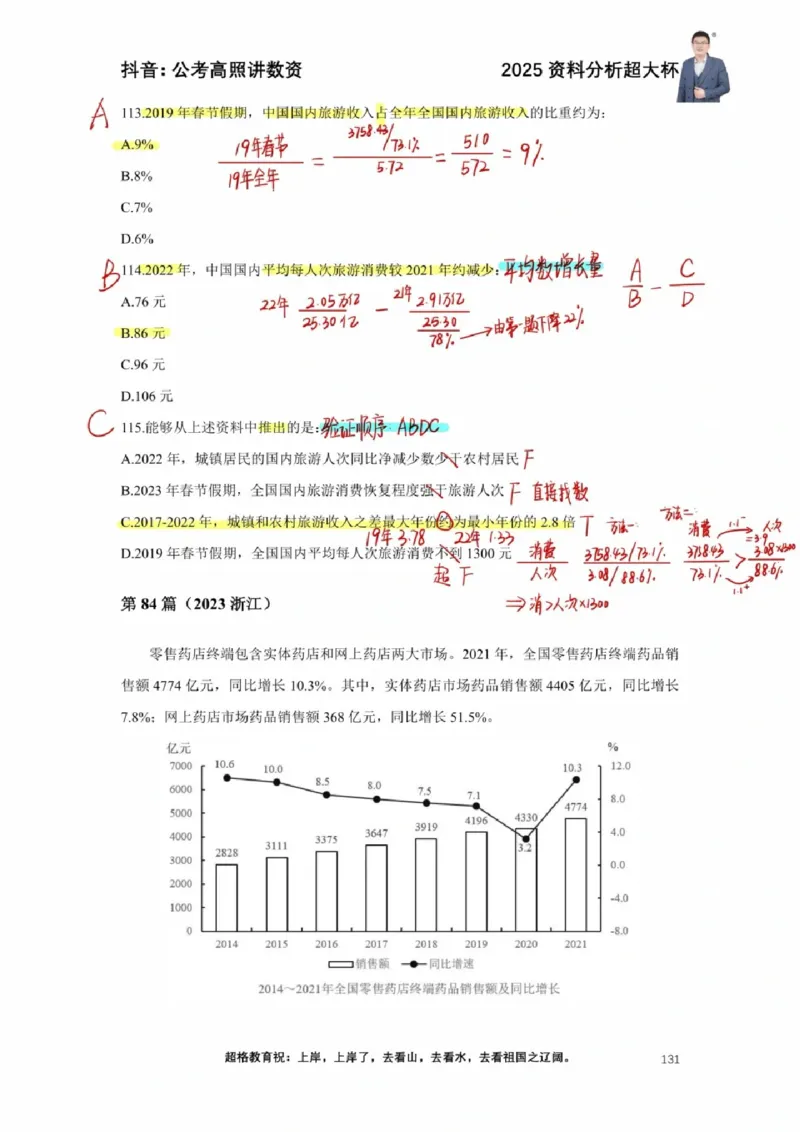 抖音：公考高照讲数资
2025 资料分析超大杯
A 113.2019 年春节假期，中国国内旅游收入占全年全国国内旅游收入的比重约为：
A.9%
19年春节 / 19年全年 = 3758.43/73.1% / 5.72 = 510 / 572 = 9%
B.8%
C.7%
D.6%
B 114.2022 年，中国国内平均每人次旅游消费较 2021 年约减少：平均数增长量 A/B - C/D
A.76 元
22年 2.05万亿 / 25.30亿 - 21年 2.91万亿 / 25.30/78% →由第一题下降22%
B.86 元
C.96 元
D.106 元
C 115.能够从上述资料中推出的是：验证顺序 ABDC
A.2022 年，城镇居民的国内旅游人次同比净减少数少于农村居民 F
B.2023 年春节假期，全国国内旅游消费恢复程度强于旅游人次 F 直接找数
C.2017-2022 年，城镇和农村旅游收入之差最大年份约为最小年份的 2.8 倍 T
19年 3.78 22年 1.33
D.2019 年春节假期，全国国内平均每人次旅游消费不到 1300 元
超 F
方法一：消费 / 人次 3758.43/73.1% / 3.08/88.6%
⇒消>人次×1300
方法二：消费 1.1- 人次
3758.43 / 73.1% > =3.9 3.08×1300 / 88.6%
1.1+
第 84 篇（2023 浙江）
零售药店终端包含实体药店和网上药店两大市场。2021 年，全国零售药店终端药品销
售额 4774 亿元，同比增长 10.3%。其中，实体药店市场药品销售额 4405 亿元，同比增长
7.8%；网上药店市场药品销售额 368 亿元，同比增长 51.5%。
亿元 %
7000 6000 5000 4000 3000 2000 1000 0
10.6 10.0 8.5 8.0 7.5 7.1 3.2 10.3
2828 3111 3375 3647 3919 4196 4330 4774
12.0 8.0 4.0 0.0 -4.0 -8.0
2014 2015 2016 2017 2018 2019 2020 2021
销售额 同比增速
2014～2021年全国零售药店终端药品销售额及同比增长
超格教育祝：上岸，上岸了，去看山，去看水，去看祖国之辽阔。
131